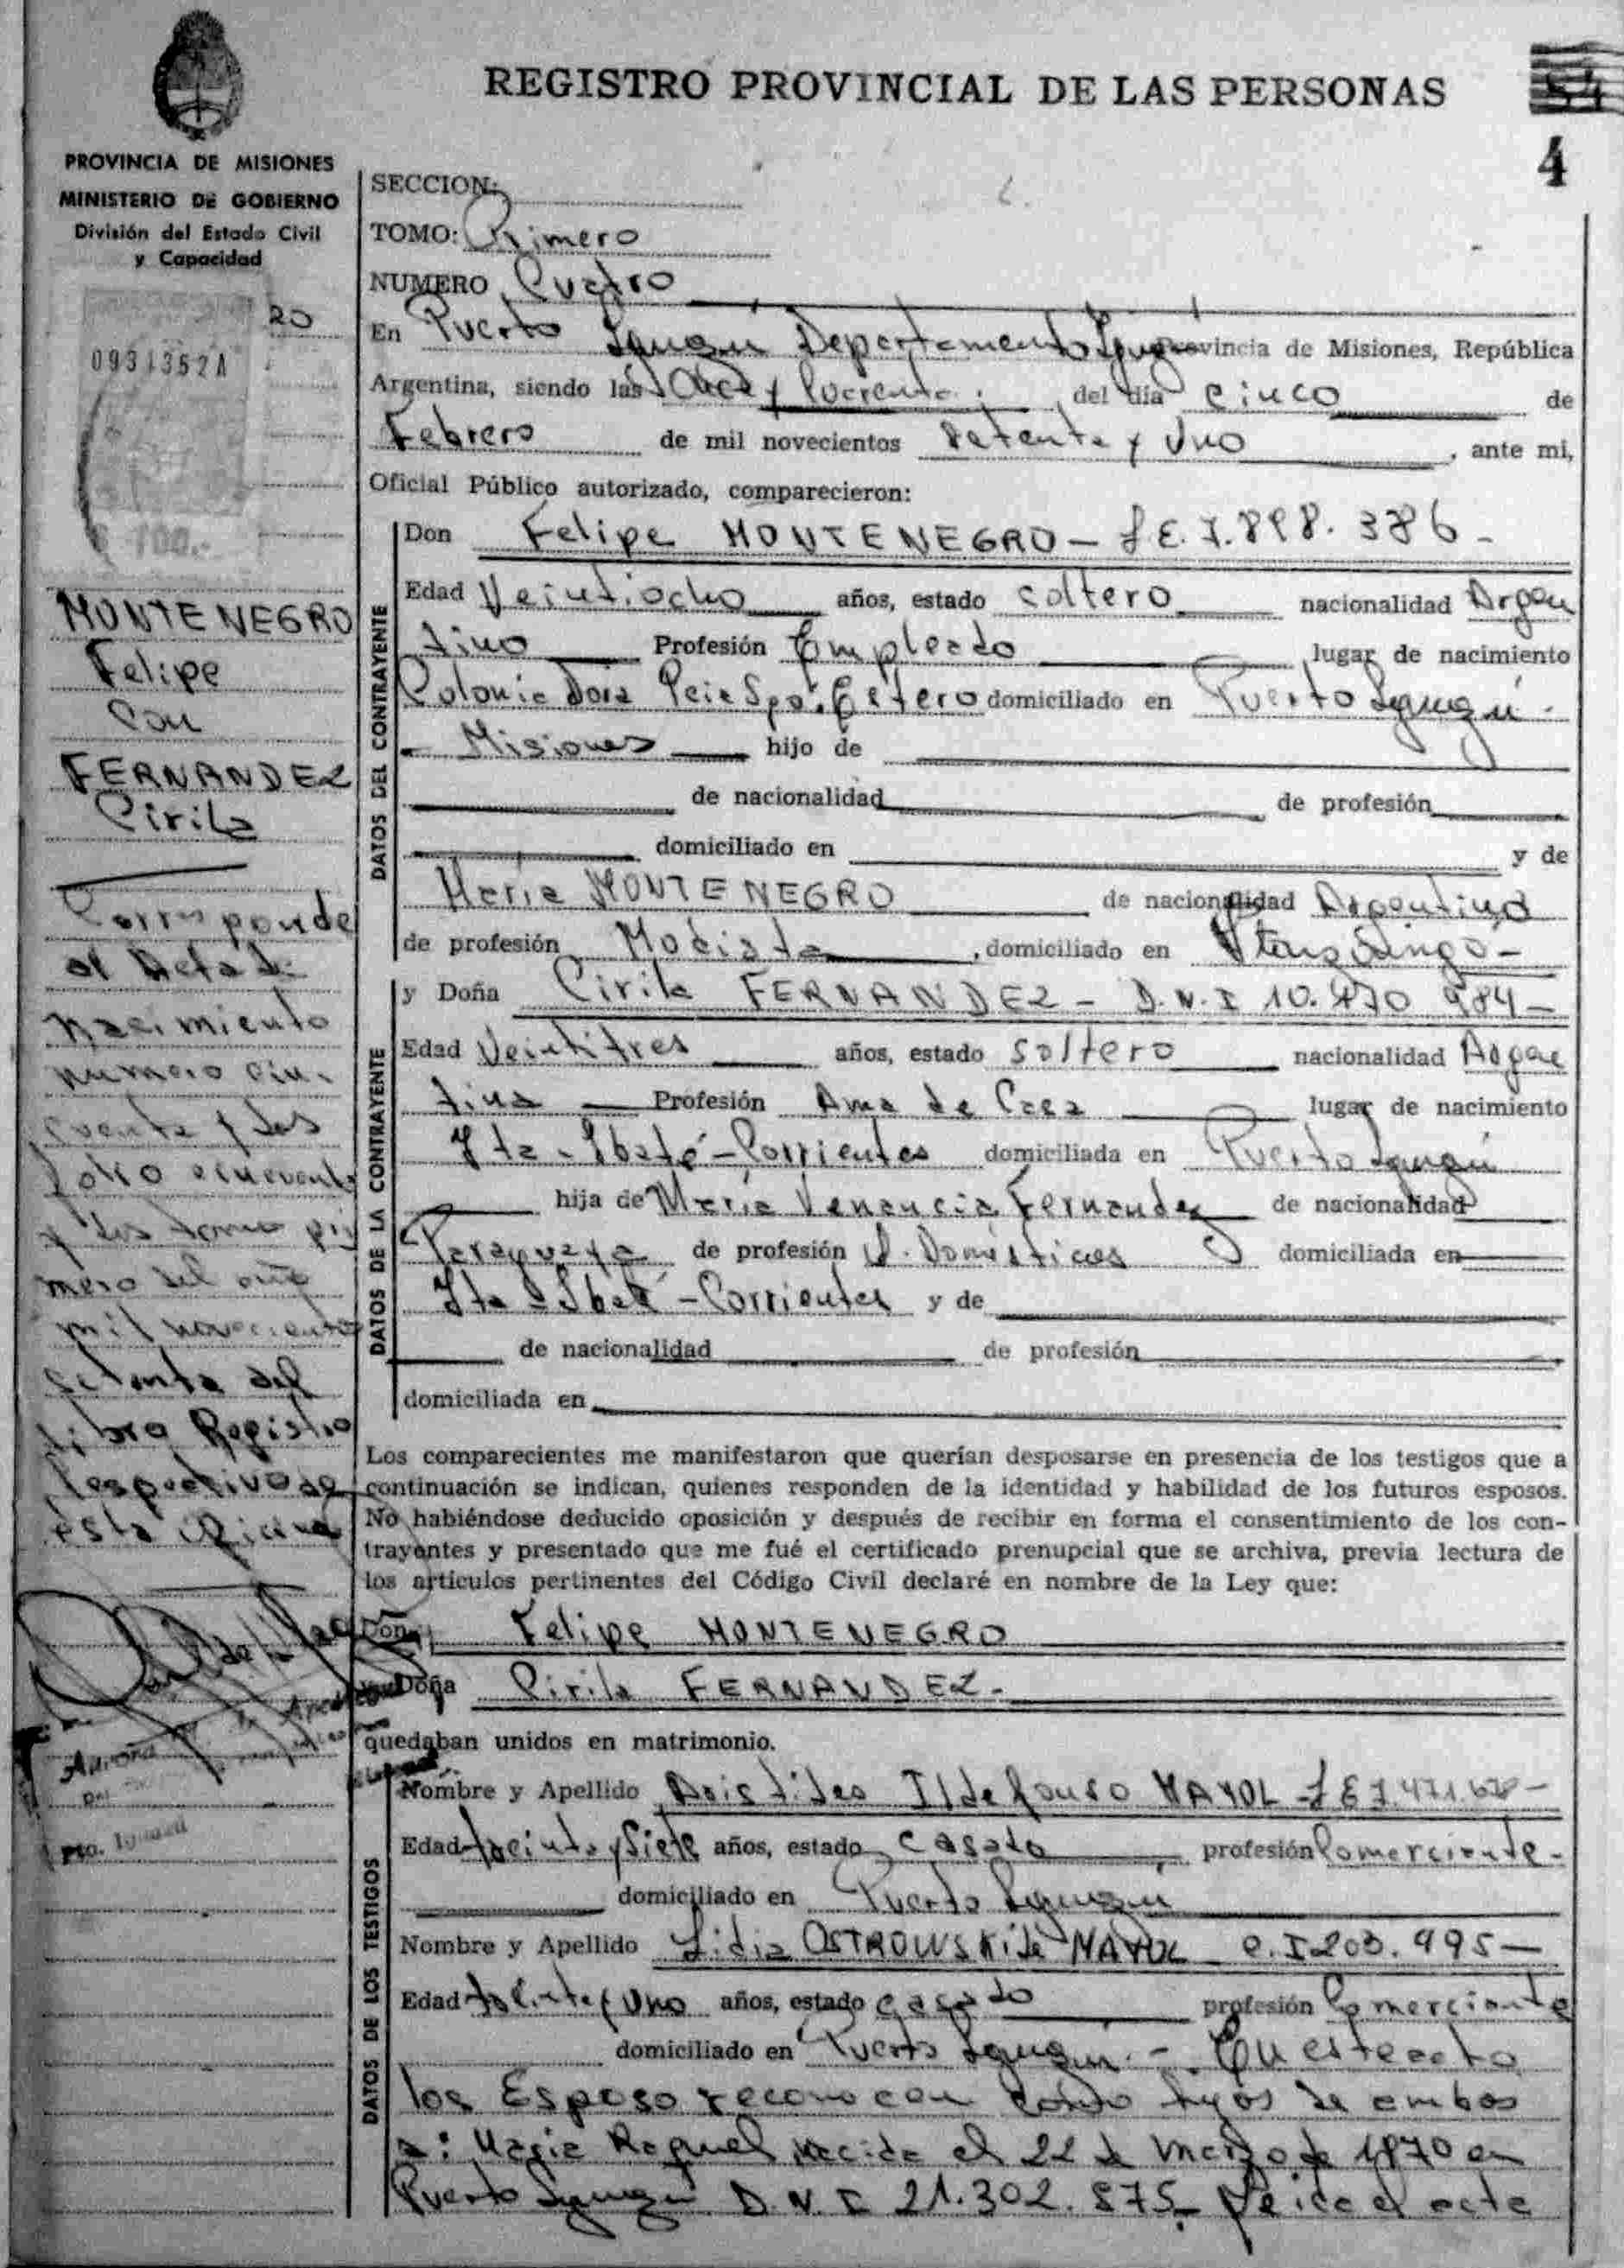 REGISTRO PROVINCIAL DE LAS PERSONAS
4
PROVINCIA DE MISIONES
MINISTERIO DE GOBIERNO
División del Estado Civil
y Capacidad
20
0931352A
100.-
MONTENEGRO
Felipe
con
FERNANDEZ
Cirila
Corresponde
al Acta de
nacimiento
numero cin-
cuenta y dos
folio cincuenta
y dos tomo pri
mero del año
mil novecientos
setenta del
Libro Registro
respectivo de
esta oficina
SECCION:
TOMO: Primero
NUMERO Cuatro
En Puerto Iguazú Departamento Iguazú Provincia de Misiones, República
Argentina, siendo las Once y Cuarenta del día cinco de
Febrero de mil novecientos setenta y uno, ante mi,
Oficial Público autorizado, comparecieron:
DATOS DEL CONTRAYENTE
Don Felipe MONTENEGRO - L.E. 7.898.386 -
Edad Veintiocho años, estado soltero nacionalidad Argen
tino Profesión Empleado lugar de nacimiento
Colonia Estero domiciliado en Puerto Iguazú -
- Misiones hijo de
de nacionalidad de profesión
domiciliado en y de
María MONTENEGRO de nacionalidad Argentina
de profesión Modista, domiciliado en
DATOS DE LA CONTRAYENTE
y Doña Cirila FERNANDEZ - D.N.I 10. 984 -
Edad Veintitres años, estado soltero nacionalidad Argen
tina Profesión Ama de Casa lugar de nacimiento
Ita-Ibaté - Corrientes domiciliada en Puerto Iguazú
hija de María Venancia Fernandez de nacionalidad
Paraguaya de profesión Q. Domésticos domiciliada en
Ita-Ibaté - Corrientes y de
de nacionalidad de profesión
domiciliada en
Los comparecientes me manifestaron que querían desposarse en presencia de los testigos que a
continuación se indican, quienes responden de la identidad y habilidad de los futuros esposos.
No habiéndose deducido oposición y después de recibir en forma el consentimiento de los con-
trayentes y presentado que me fué el certificado prenupcial que se archiva, previa lectura de
los artículos pertinentes del Código Civil declaré en nombre de la Ley que:
Don Felipe MONTENEGRO
y Doña Cirila FERNANDEZ.-
quedaban unidos en matrimonio.
Pto. Iguazú
DATOS DE LOS TESTIGOS
Nombre y Apellido Aristides Ildefonso MAYOL - L.E 7.471.
Edad treinta y Siete años, estado casado profesión Comerciante -
domiciliado en Puerto Iguazú
Nombre y Apellido Lidia OSTROWSKI de MAYOL C.I 203.995 -
Edad treinta y uno años, estado casado profesión Comerciante
domiciliado en Puerto Iguazú - En este acto
los Esposo reconocen como hijos de ambos
a: María Raquel nacida el 22 de marzo de 1970 en
Puerto Iguazú D.N.I 21.302.875 - el acta